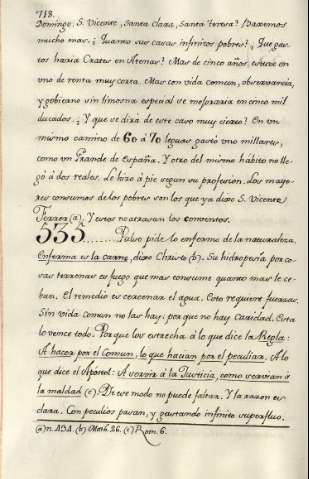 718.
Domingo, S. Vicente, Santa Clara, Santa Teresa? Haremos
mucho mas. ¿Quanto sus casas infinitos pobres? ¿Que gas-
tos haria Crates en Atenas? Mas de cinco años, estuvo en
uno de renta muy corta. Mas con vida comun, observancia,
y gobierno sin limosna especial se mejoraria en cinco mil
ducados. ¿Y que se dirá de este caso muy cierto? En un
mismo camino de 60 á 70 leguas gastó uno millares,
como un Grande de España. Y otro del mismo hábito no lle-
gó á dos reales. Le hizo á pie segun su profesion. Los mayo-
res consumos de los pobres son los que ya dixo S. Vicente
Ferrer (a). Y estos no atrasan los conventos.
535........Pulso pide lo enfermo de la naturaleza.
Enferma es la carne, dixo Christo (b). Su hidropesía por co-
sas terrenas es fuego, que mas consume quanto mas le ce-
ban. El remedio es cercenar el agua. Esto requiere fuerzas.
Sin vida comun no las hay, por que no hay Caridad. Esta
lo vence todo. Porque los estrecha á lo que dice la Regla:
A hacer por el Comun, lo que hacian por el peculiar. A lo
que dice el Apóstol: A servir á la Justicia, como servian á
la maldad (c). De ese modo no puede faltar. Y la razon es
clara. Con peculios pasan, y gastando infinito superfluo.
(a) n. 434. (b) Math. 26. (c) Rom. 6.